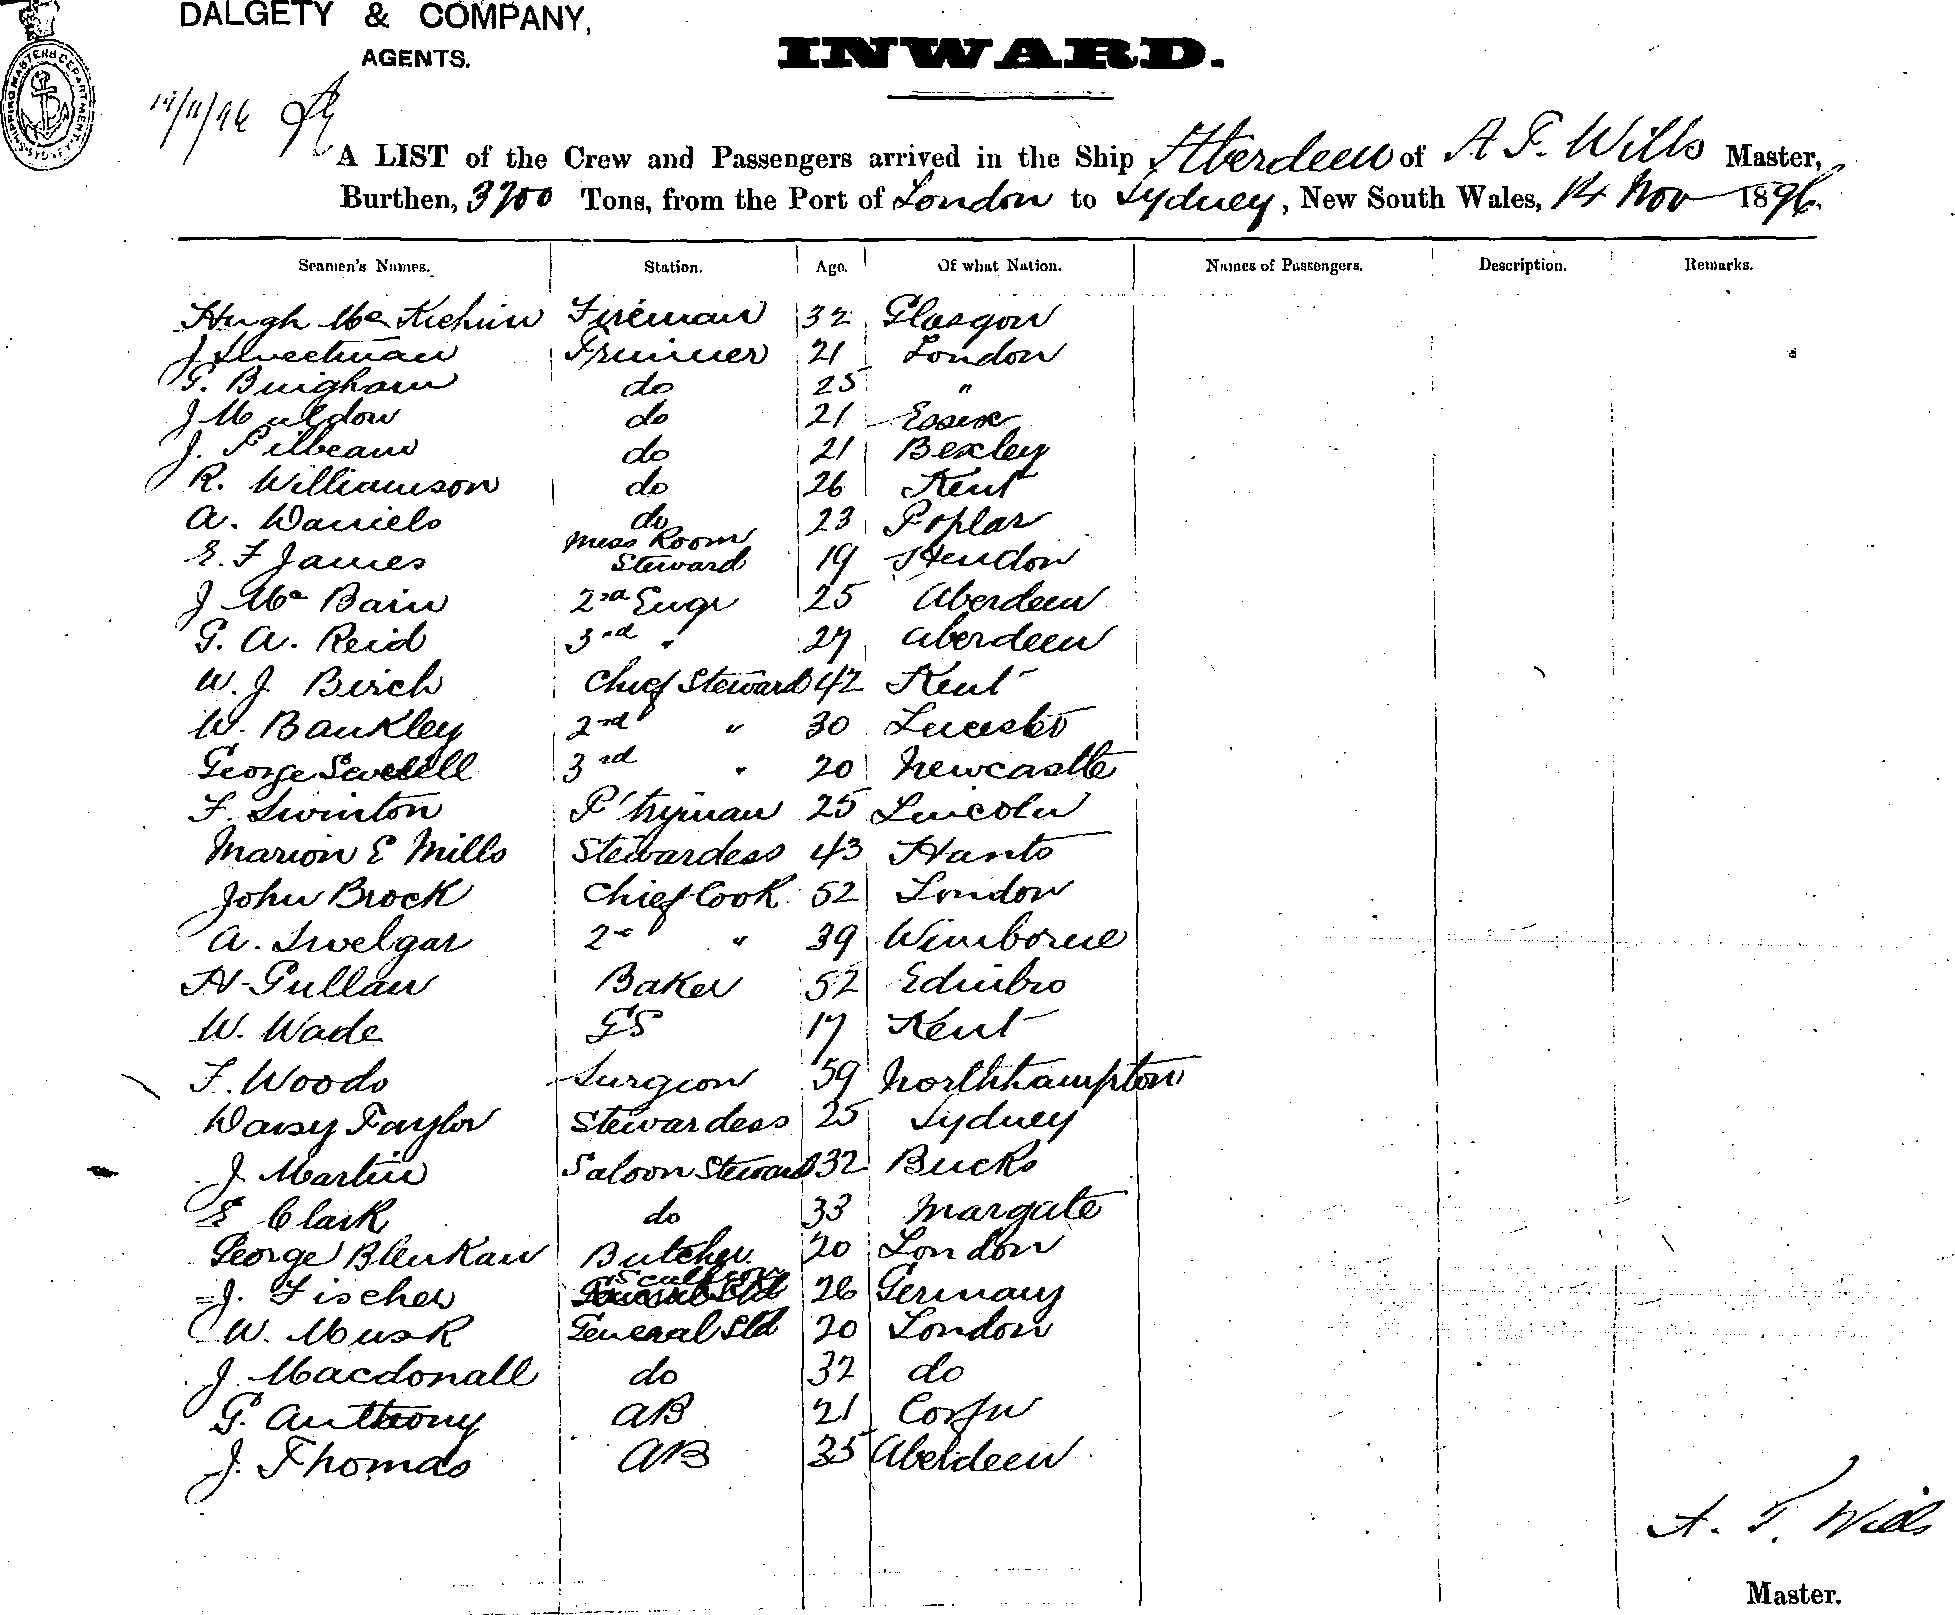 DALGETY & COMPANY,
AGENTS.
INWARD.
14/11/96
A LIST of the Crew and Passengers arrived in the Ship Aberdeen of A T. Wills Master,
Burthen, 3700 Tons, from the Port of London to Sydney, New South Wales, 14 Nov 1896.
Seamen's Names. Station. Age. Of what Nation. Names of Passengers. Description. Remarks.
Hugh Mc Kichin Fireman 32 Glasgow
J Sweetman Trimmer 21 London
G. Bingham do 25 "
J Muldow do 21 Essex
J. Pilbeam do 21 Bexley
R. Williamson do 26 Kent
A. Daniels do 23 Poplar
E. F James Mess Room Steward 19 Hendon
J Mc Bain 2nd Engr 25 Aberdeen
G. A. Reid 3rd " 27 Aberdeen
W. J. Birch Chief Steward 42 Kent
W. Bankley 2nd " 30 Leicester
George 3rd " 20 Newcastle
F. Swinton P'tryman 25 Lincoln
Marion E Mills Stewardess 43 Hants
John Brock Chief Cook 52 London
A. Swelgar 2nd " 39 Wimborne
H Gullan Baker 52 Edinbro
W. Wade GS 17 Kent
F. Woods Surgeon 59 Northhampton
Daisy Taylor Stewardess 25 Sydney
J. Martin Saloon Steward 32 Bucks
E Clark do 33 Margate
George Blenkan Butcher 20 London
J. Fischer Scullion 26 Germany
W. Musk General Std 20 London
J. Macdonall do 32 do
G. Anthony AB 21 Corfu
J. Thomas AB 35 Aberdeen
A. T. Wills
Master.